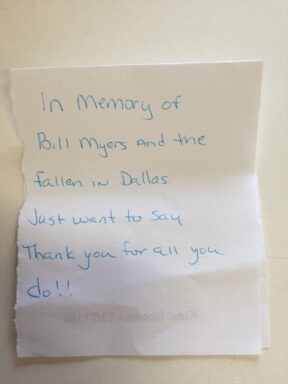 In Memory of
Bill Myers And the
Fallen in Dallas
Just want to say
Thank you for all you
do!!